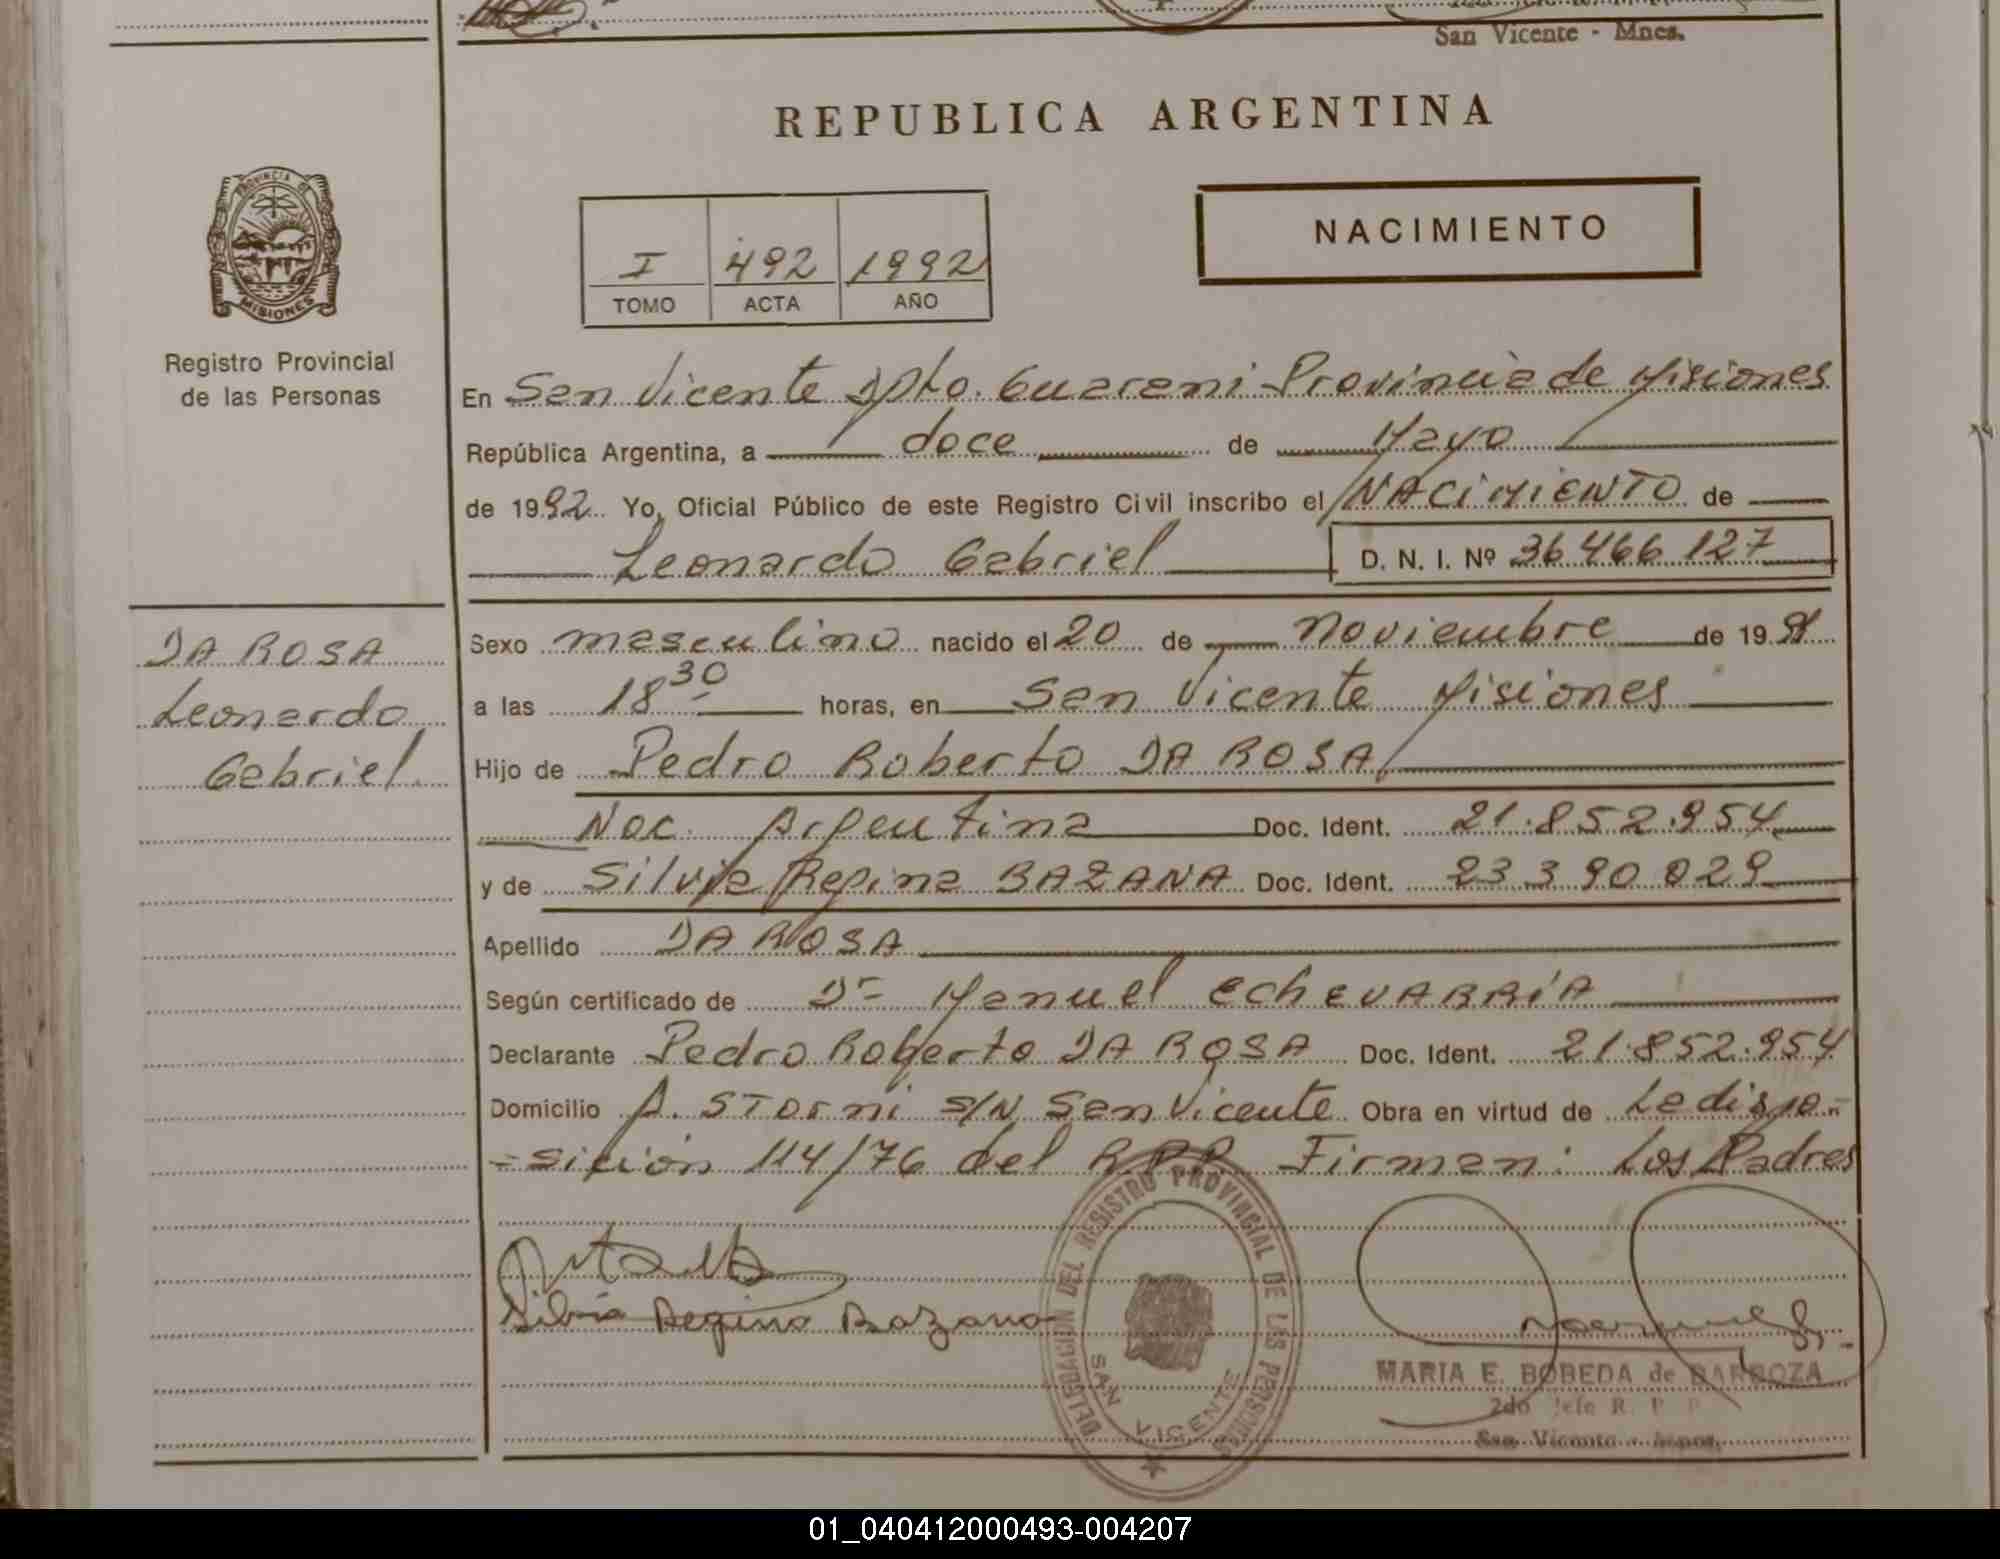 San Vicente - Mnes.
REPUBLICA ARGENTINA
NACIMIENTO
I 492 1992
TOMO ACTA AÑO
PROVINCIA DE
MISIONES
Registro Provincial
de las Personas
En San Vicente Dpto. Guarani Provincia de Misiones
República Argentina, a doce de Mayo
de 1992 Yo, Oficial Público de este Registro Civil inscribo el NACIMIENTO de
Leonardo Gabriel D. N. I. Nº 36.466.127
DA ROSA
Leonardo
Gabriel
Sexo masculino nacido el 20 de Noviembre de 1991
a las 18 30 horas, en San Vicente Misiones
Hijo de Pedro Roberto DA ROSA
Nac. Argentina Doc. Ident. 21.852.954
y de Silvia Regina BAZANA Doc. Ident. 23 390 029
Apellido DA ROSA
Según certificado de Dr Manuel ECHEVARRÍA
Declarante Pedro Roberto DA ROSA Doc. Ident. 21.852.954
Domicilio A. Storni S/N San Vicente Obra en virtud de La dispo-
-sición 114/76 del R.P.P. Firman: Los Padres
Silvia Regina Bazana
DELEGACION DEL REGISTRO PROVINCIAL DE LAS PERSONAS
SAN VICENTE
MARIA E. BOBEDA de BARBOZA
2do Jefe R. P. P.
San Vicente - Mnes.
01_040412000493-004207